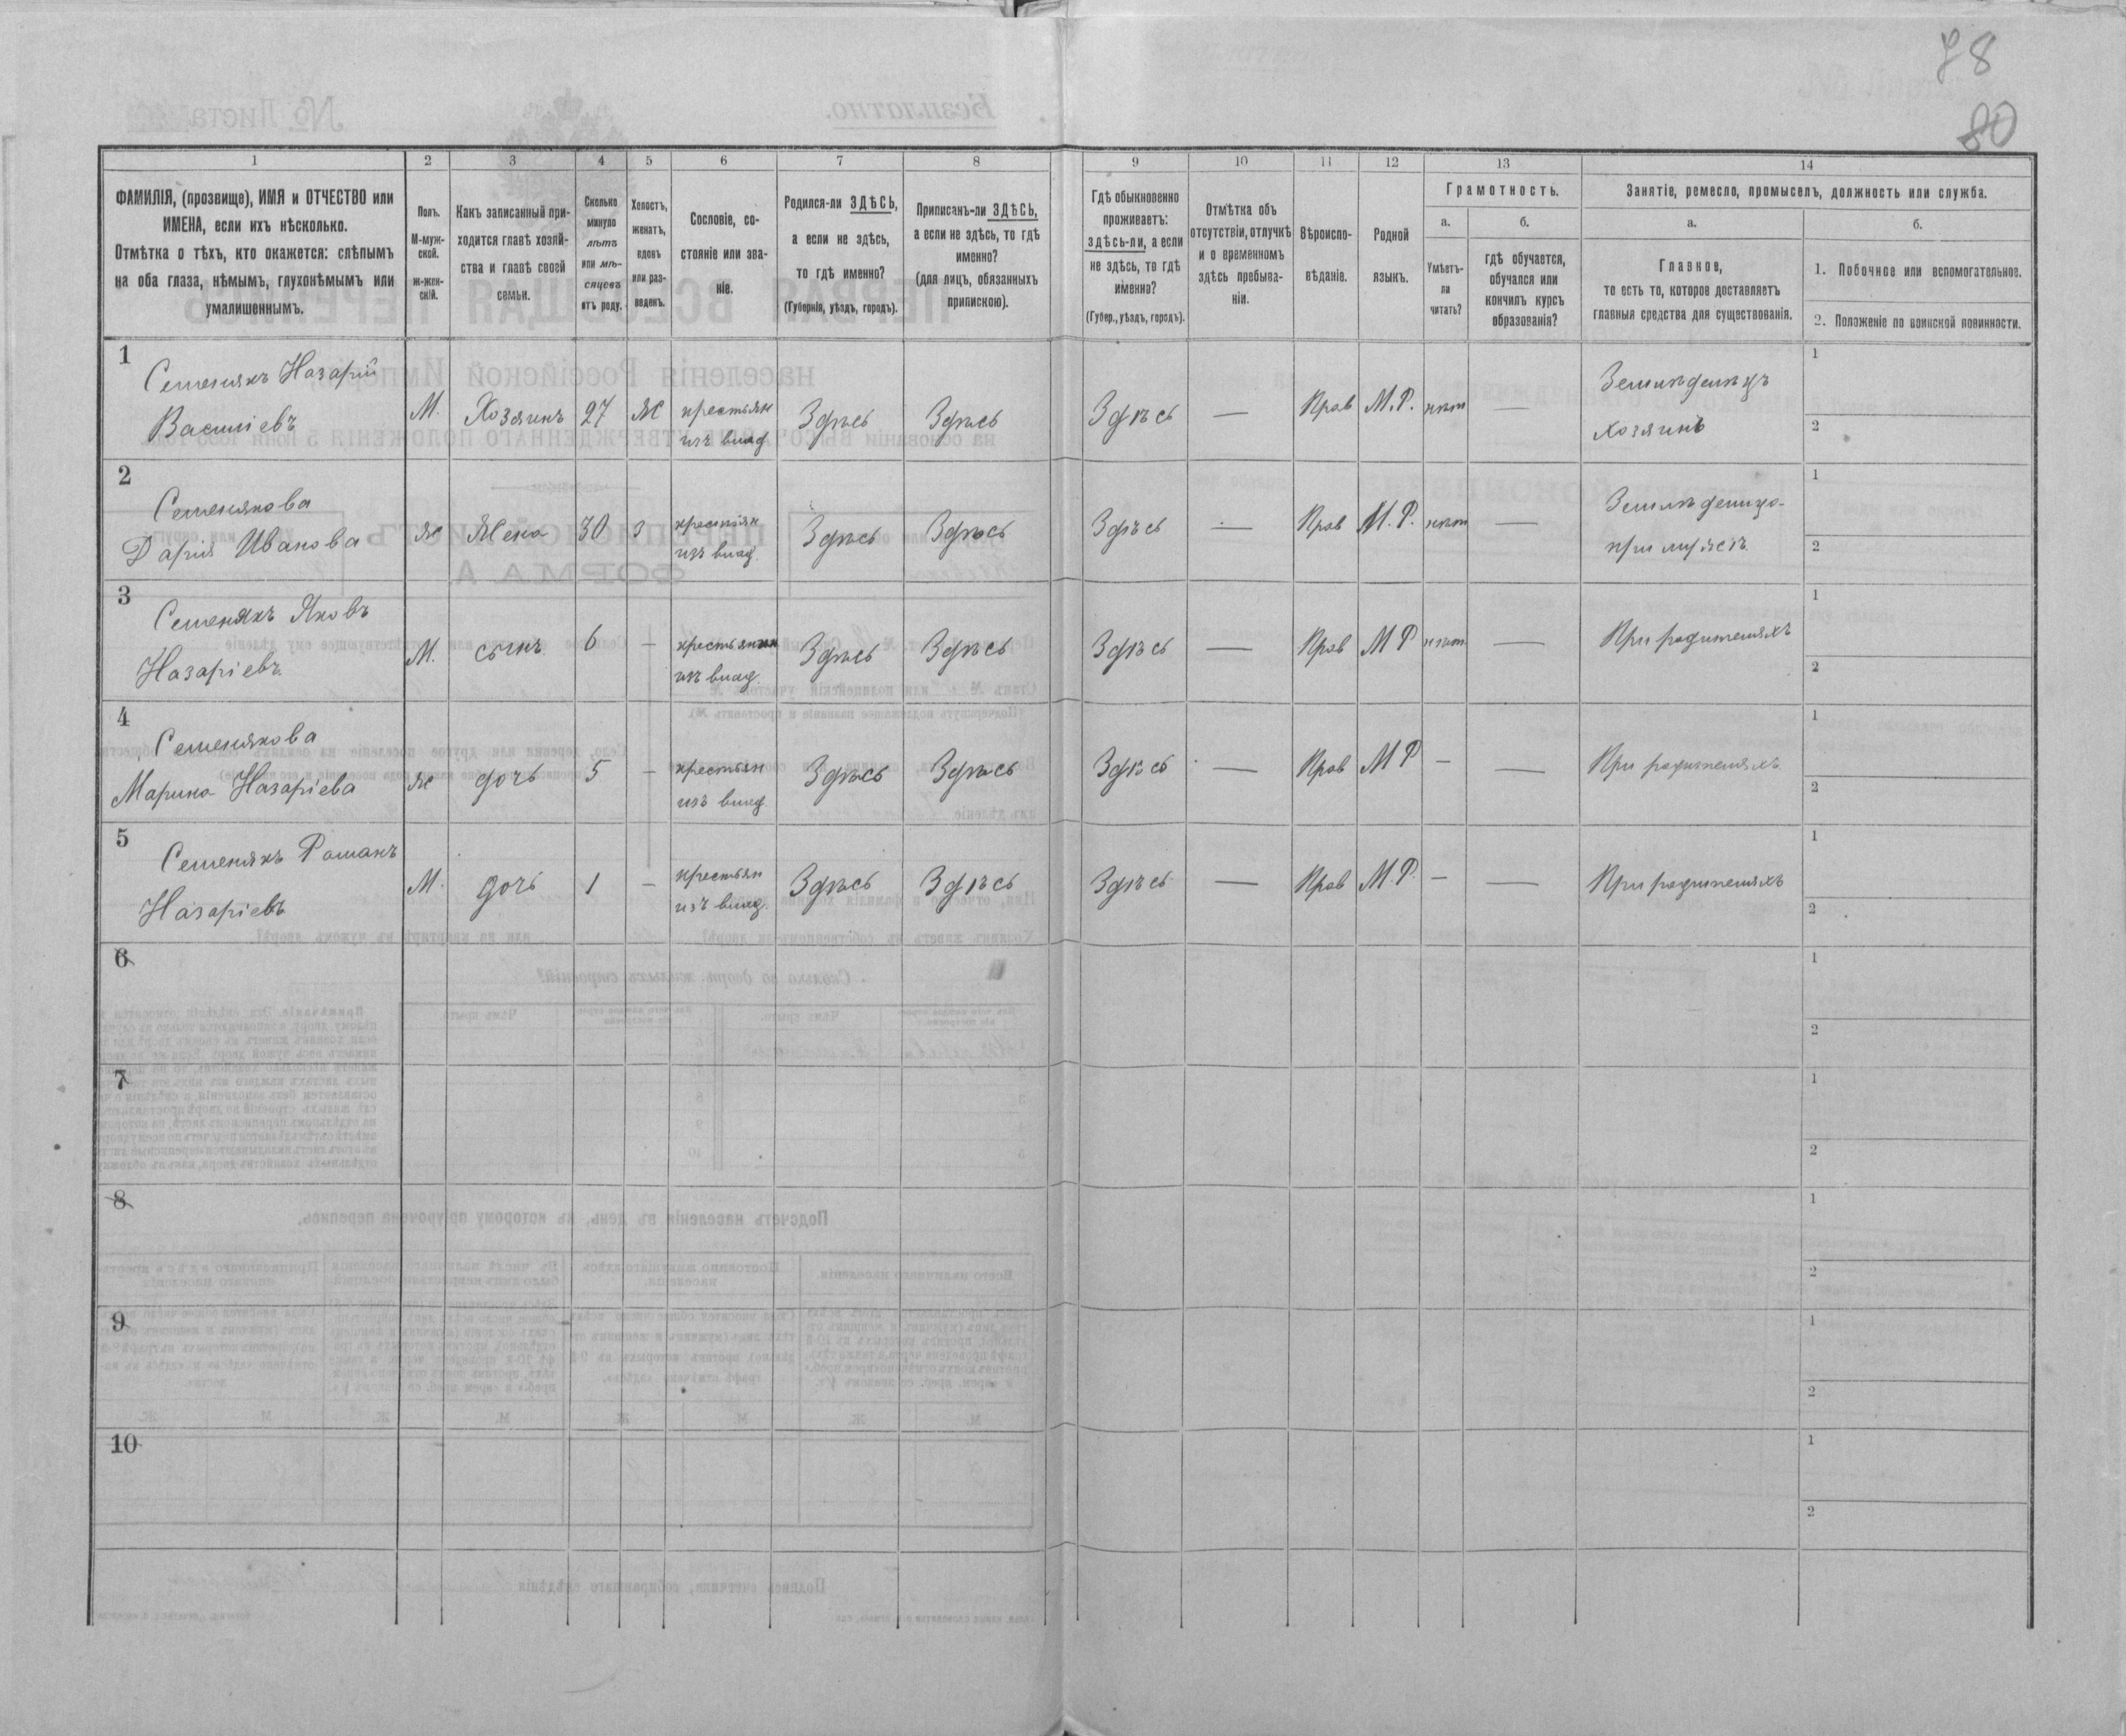 78
80
1 2 3 4 5 6 7 8 9 10 11 12 13 14
ФАМИЛІЯ, (прозвище), ИМЯ и ОТЧЕСТВО или
ИМЕНА, если ихъ нѣсколько.
Отмѣтка о тѣхъ, кто окажется: слѣпымъ
на оба глаза, нѣмымъ, глухонѣмымъ или
умалишеннымъ.
Полъ.
М-муж-
ской.
ж-жен-
скій.
Какъ записанный при-
ходится главѣ хозяй-
ства и главѣ своей
семьи.
Сколько
минуло
лѣтъ
или мѣ-
сяцевъ
отъ роду.
Холостъ,
женатъ,
вдовъ
или раз-
веденъ.
Сословіе, со-
стояніе или зва-
ніе.
Родился-ли ЗДѢСЬ,
а если не здѣсь,
то гдѣ именно?
(Губернія, уѣздъ, городъ).
Приписанъ-ли ЗДѢСЬ,
а если не здѣсь, то гдѣ
именно?
(для лицъ, обязанныхъ
припискою).
Гдѣ обыкновенно
проживаетъ:
здѣсь-ли, а если
не здѣсь, то гдѣ
именно?
(Губер., уѣздъ, городъ).
Отмѣтка объ
отсутствіи, отлучкѣ
и о временномъ
здѣсь пребыва-
ніи.
Вѣроиспо-
вѣданіе.
Родной
языкъ.
Грамотность.
а.
Умѣетъ-
ли
читать?
б.
гдѣ обучается,
обучался или
кончилъ курсъ
образованія?
Занятіе, ремесло, промыселъ, должность или служба.
а.
Главное,
то есть то, которое доставляетъ
главныя средства для существованія.
б.
1. Побочное или вспомогательное.
2. Положеніе по воинской повинности.
1
Семенякъ Назарій
Василіевъ
М. Хозяинъ 27 Ж крестьян
изъ влад.
Здѣсь Здѣсь Здѣсь — Прав М.Р. нѣт —
Земледѣлецъ
хозяинъ
1
2
2
Семенякова
Дарія Иванова
Ж Жена 30 З крестьян
изъ влад.
Здѣсь Здѣсь Здѣсь — Прав М.Р. нѣт —
при мужѣ
1
2
3
Семенякъ Яковъ
Назаріевъ
М. сынъ 6 — крестьянин
изъ влад.
Здѣсь Здѣсь Здѣсь — Прав М Р нѣт —
При родителяхъ
1
2
4
Семенякова
Марина Назаріева
Ж дочь 5 — крестьян
изъ влад.
Здѣсь Здѣсь Здѣсь — Прав М Р — —
При родителяхъ
1
2
5
Семенякъ Романъ
Назаріевъ
М. дочь 1 — крестьян
изъ влад.
Здѣсь Здѣсь Здѣсь — Прав М.Р. — —
При родителяхъ
1
2
6
1
2
7
1
2
8
1
2
9
1
2
10
1
2